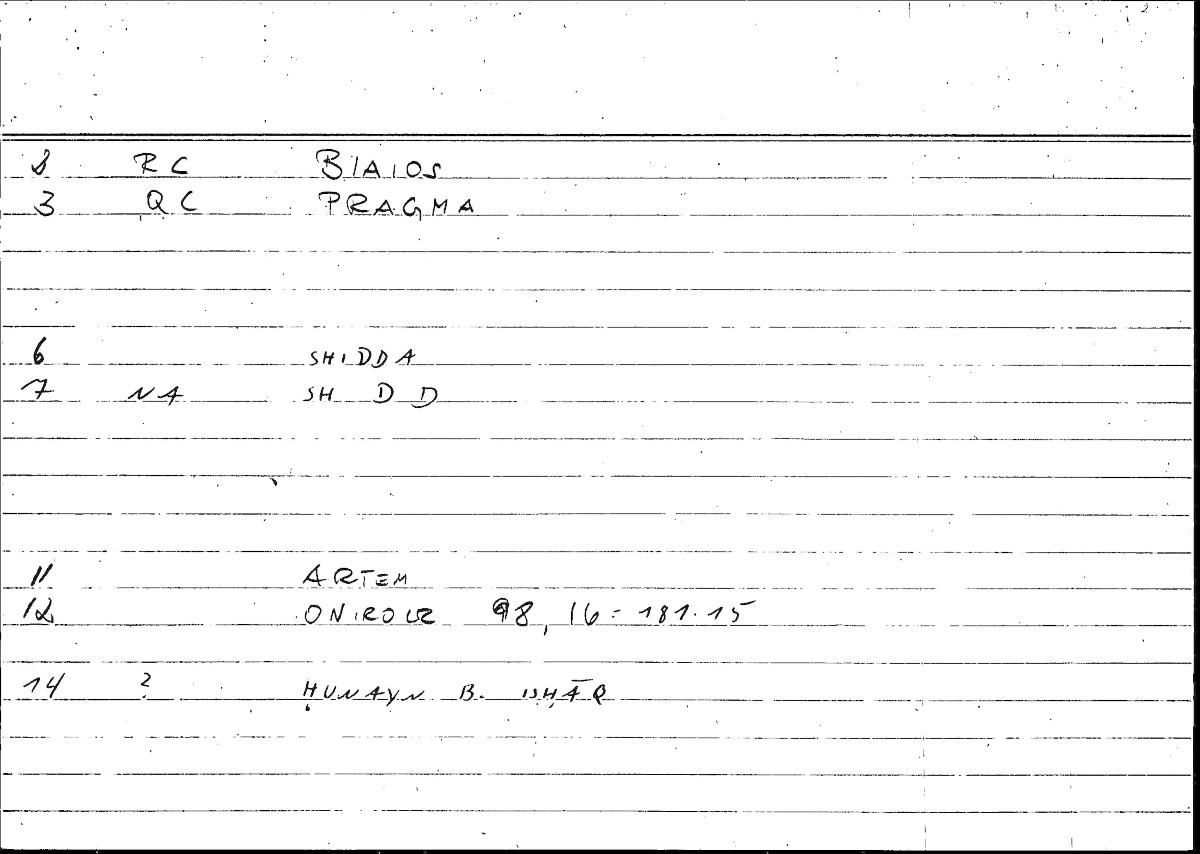 2 RC BIAIOS
3 QC PRAGMA
6 SHIDDA
7 NA SH D D
11 ARTEM
12 ONIROCR 98, 16 = 181.15
14 2 ḤUNAYN B. ISḤĀQ